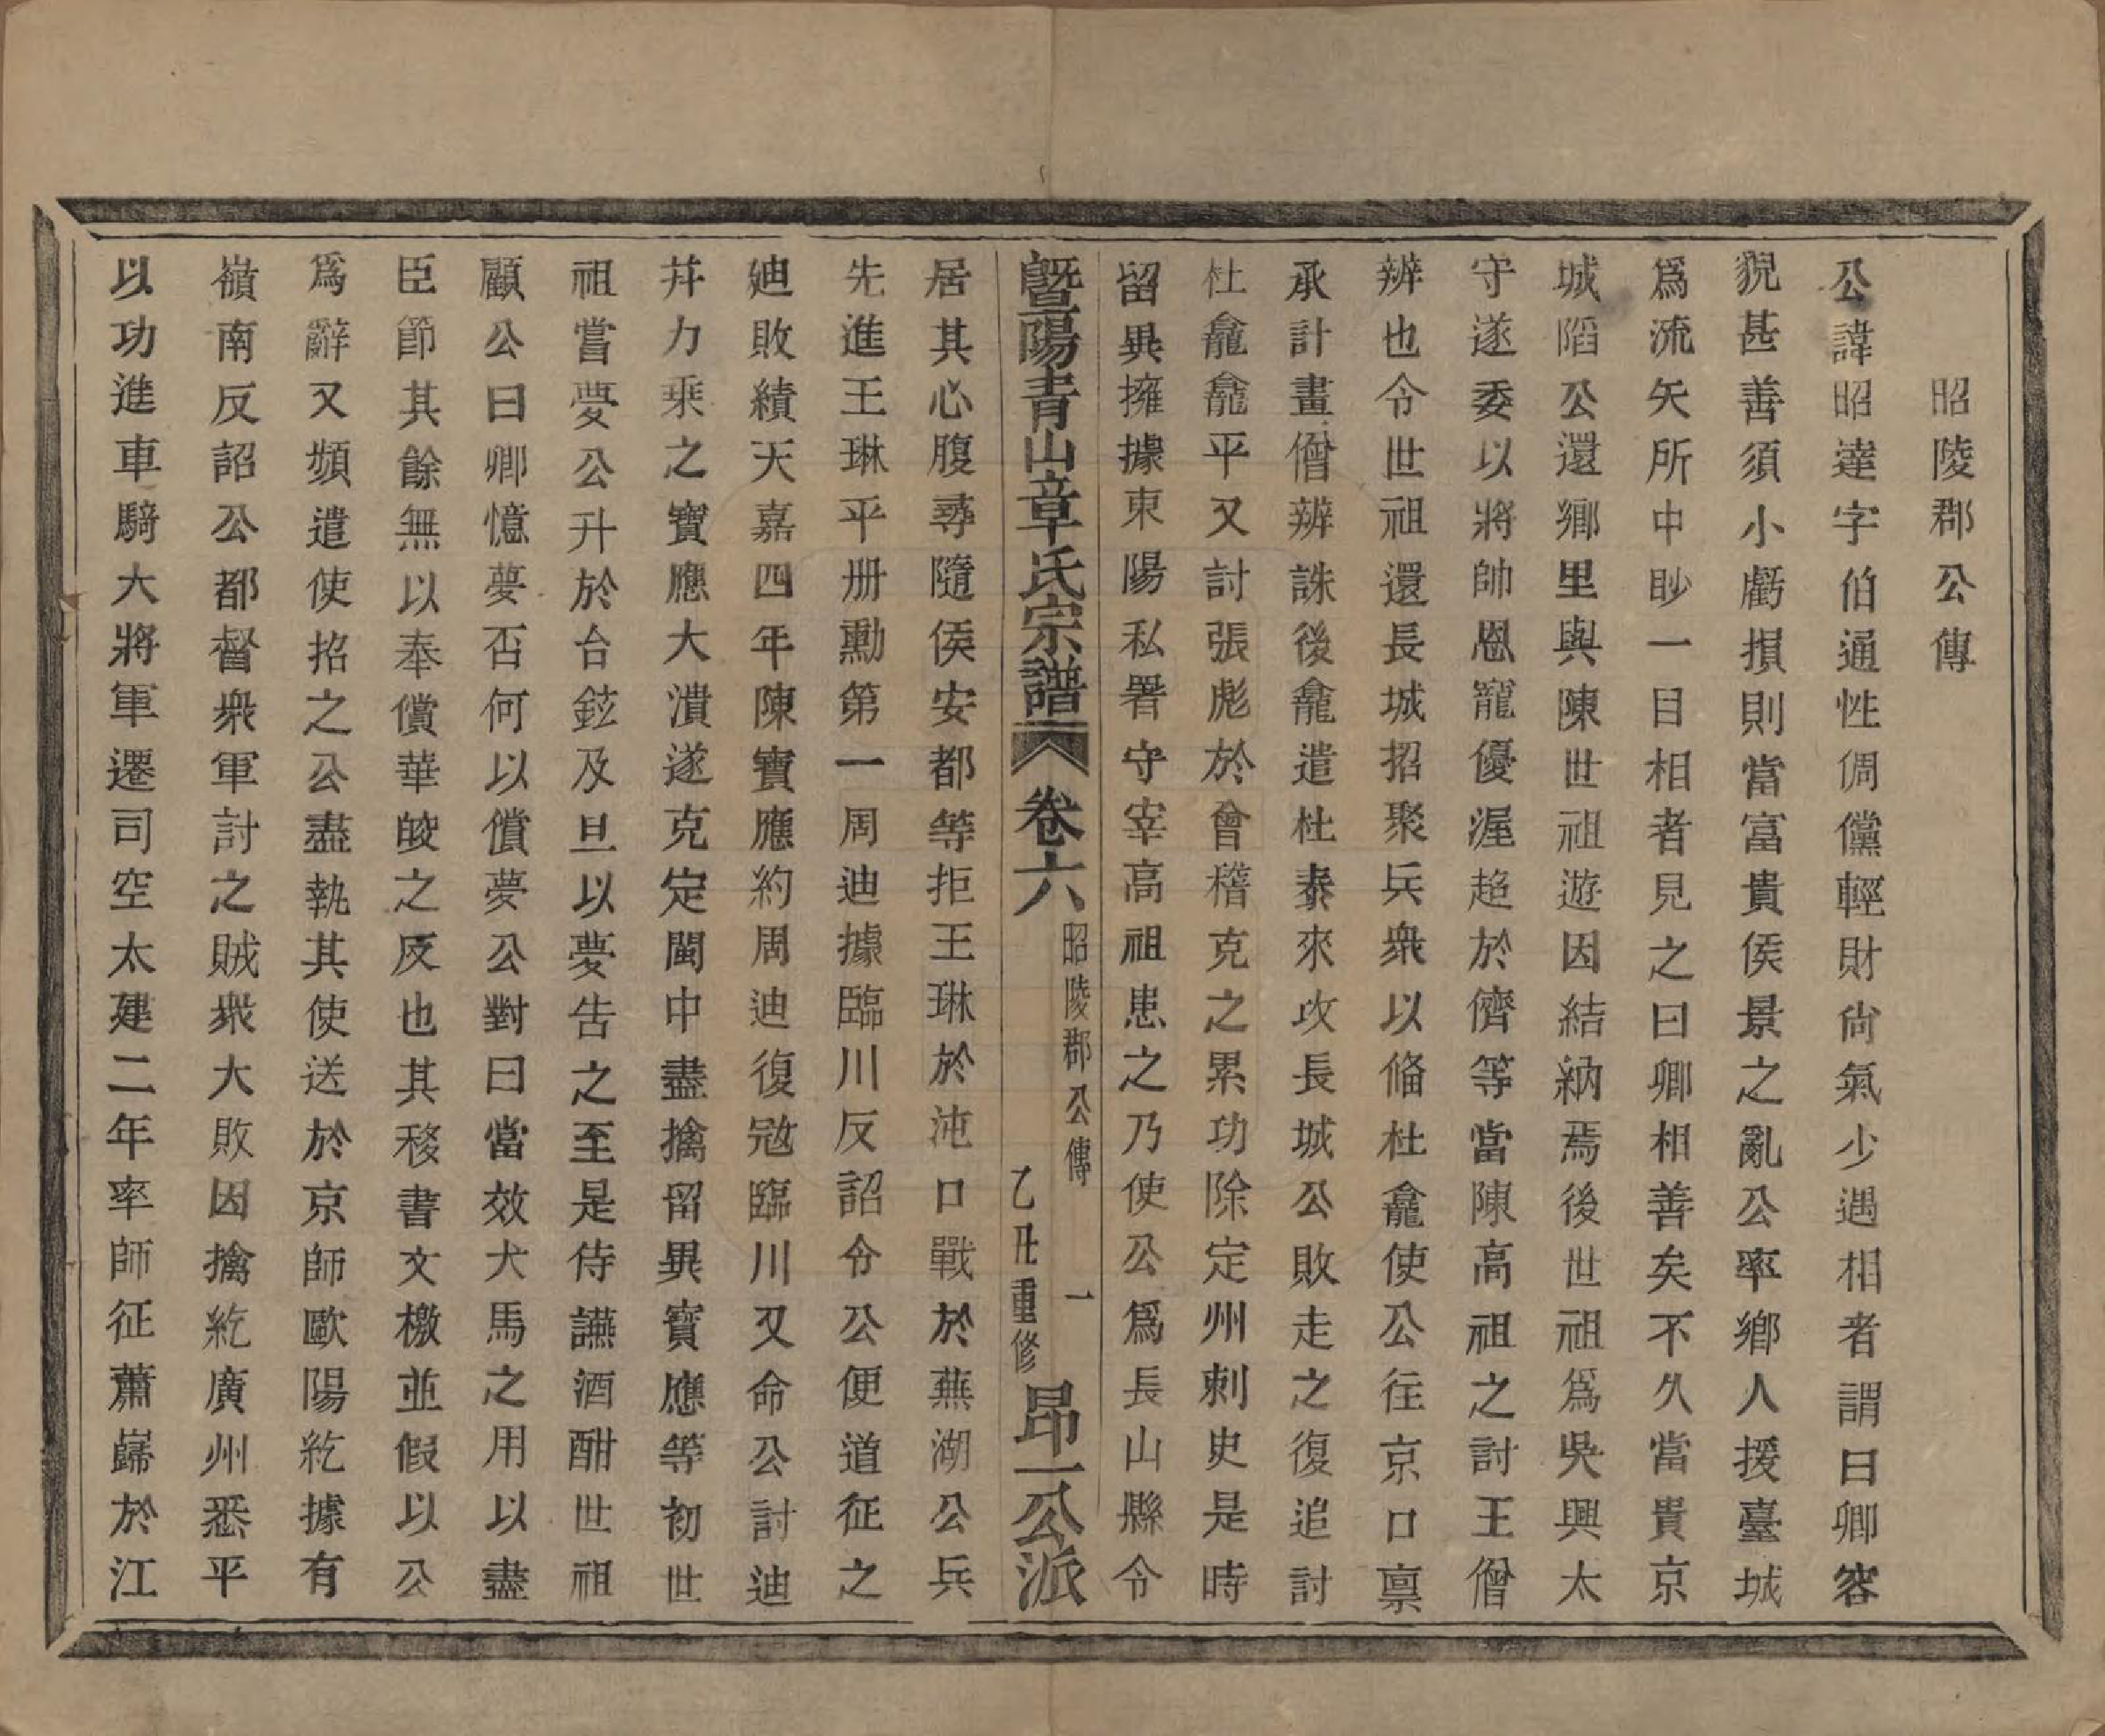 昭陵郡公傳
公諱昭達字伯通性倜儻輕財尙氣少遇相者謂曰卿容
貌甚善須小虧損則當富貴侯景之亂公率鄉人援臺城
爲流矢所中眇一目相者見之曰卿相善矣不久當貴京
城陷公還鄉里與陳世祖遊因結納焉後世祖爲吳興太
守遂委以將帥恩寵優渥超於儕等當陳高祖之討王僧
辨也令世祖還長城招聚兵衆以俻杜龕使公往京口禀
承計畫僧辨誅後龕遣杜泰來攻長城公敗走之復追討
杜龕龕平又討張彪於會稽克之累功除定州刺史是時
留異擁據東陽私署守宰高祖患之乃使公爲長山縣令
暨陽青山章氏宗譜 卷六 昭陵郡公傳 一 乙丑重修 昂一公派
居其心腹尋隨侯安都等拒王琳於沌口戰於蕪湖公兵
先進王琳平册勳第一周迪據臨川反詔令公便道征之
迪敗績天嘉四年陳寶應約周迪復冦臨川又命公討迪
幷力乘之寶應大潰遂克定閩中盡擒留異寶應等初世
祖嘗夢公升於台鉉及旦以夢告之至是侍讌酒酣世祖
顧公曰卿憶夢否何以償夢公對曰當效犬馬之用以盡
臣節其餘無以奉償華皎之反也其移書文檄並假以公
爲辭又頻遣使招之公盡執其使送於京師歐陽紇據有
嶺南反詔公都督衆軍討之賊衆大敗因擒紇廣州悉平
以功進車騎大將軍遷司空太建二年率師征蕭巋於江